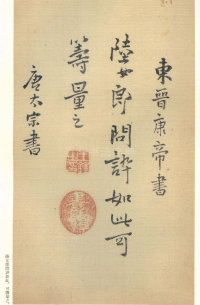 東晉康帝書
陸女郎問訃如此可
籌量之
唐太宗書